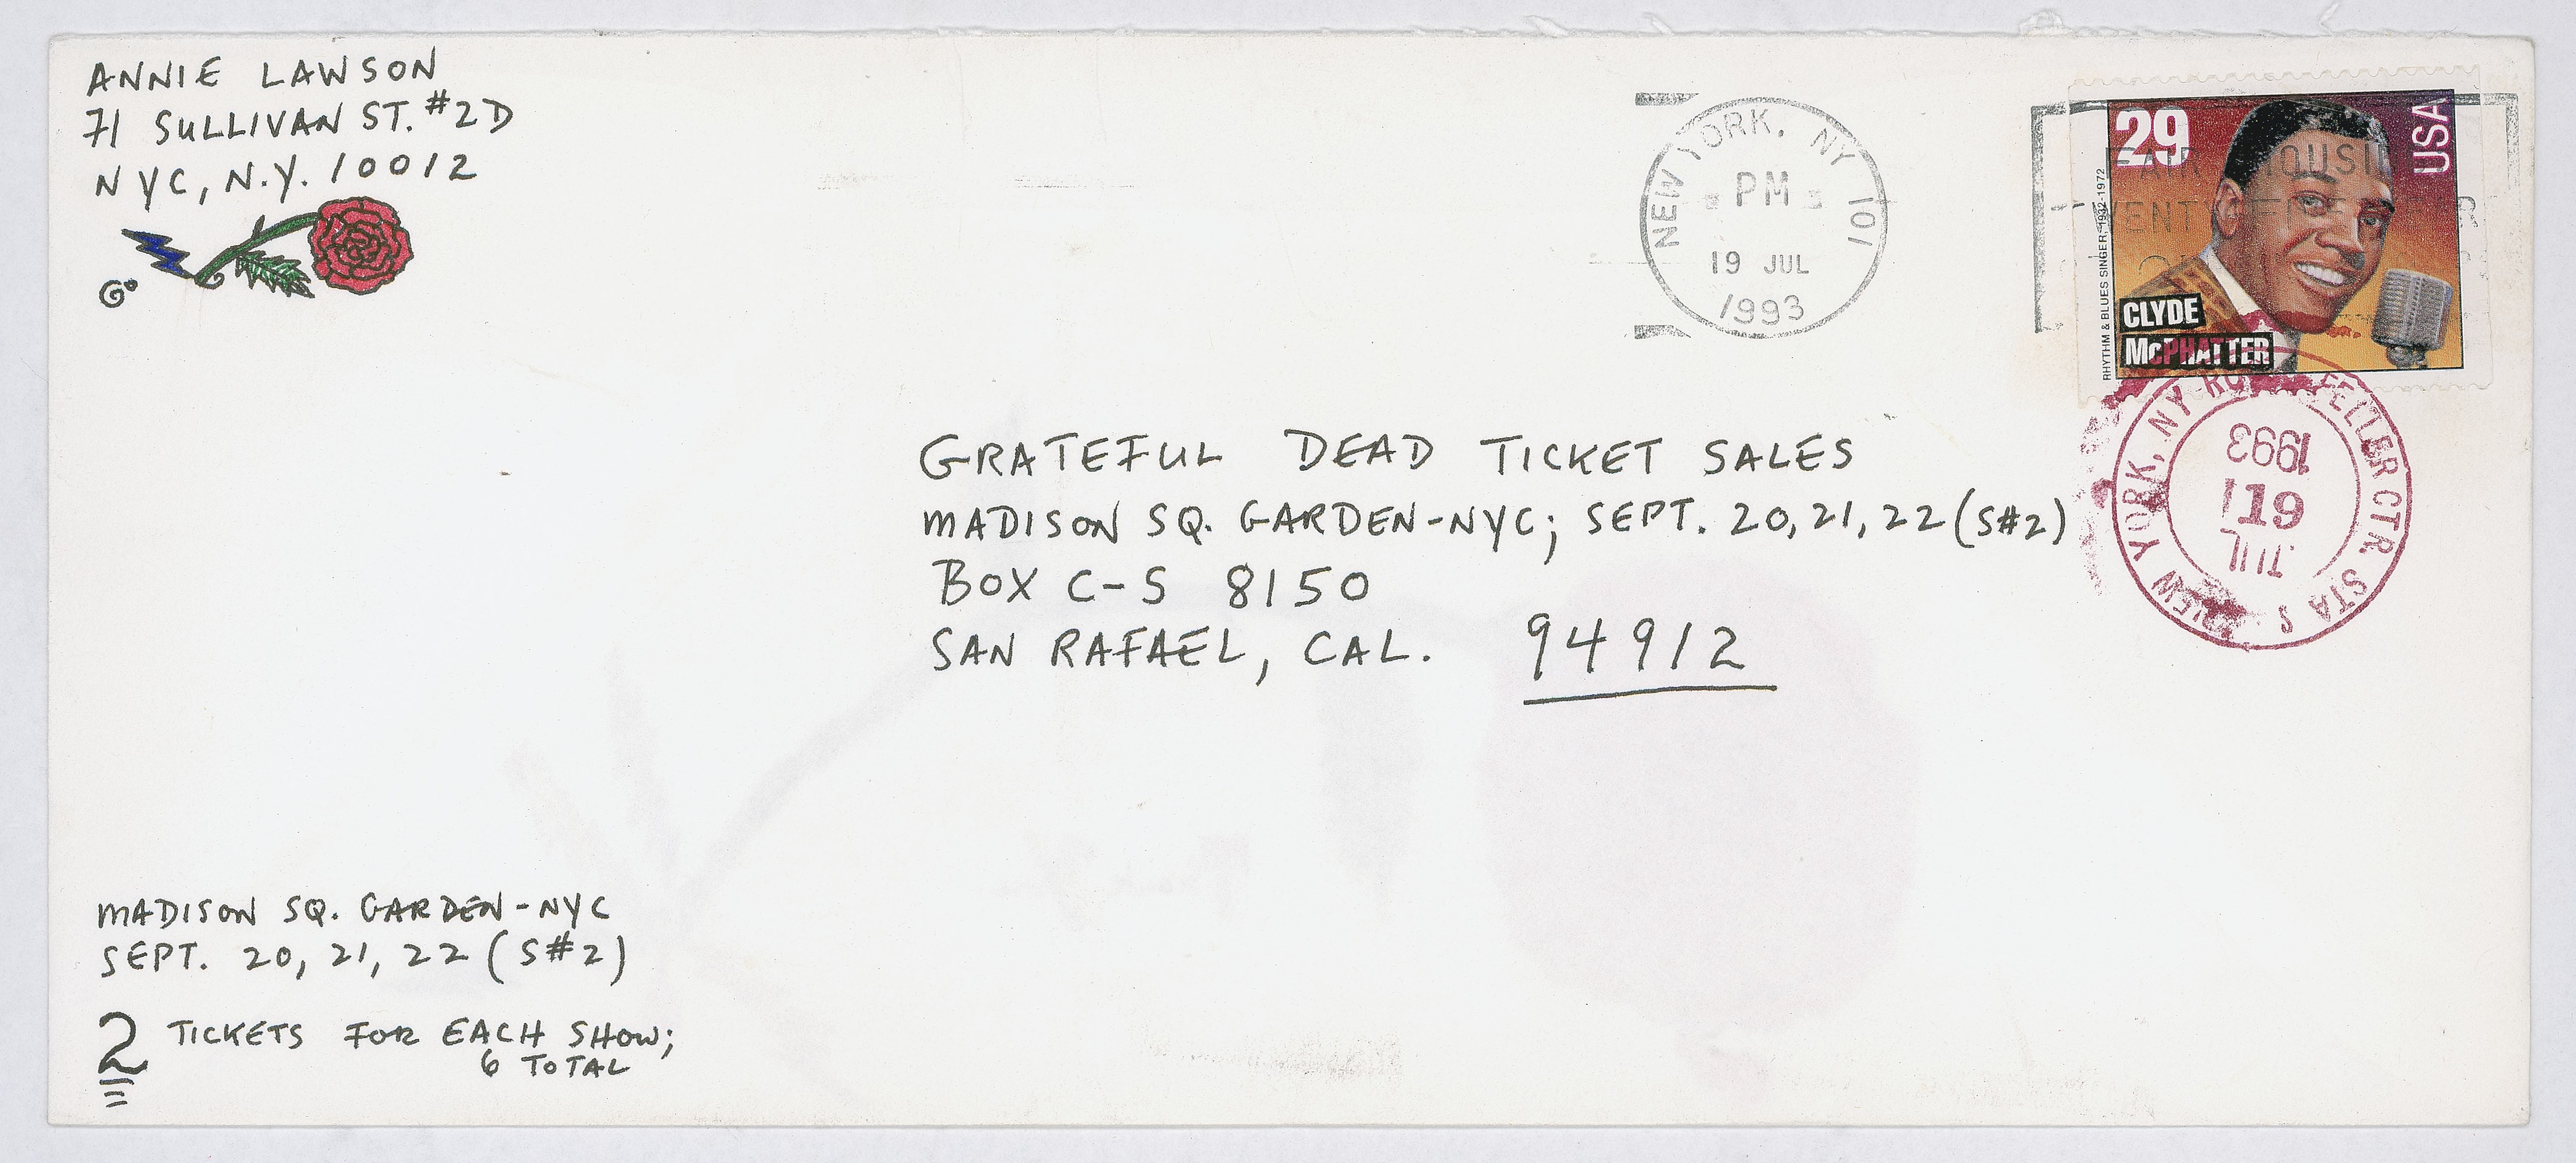 ANNIE LAWSON
71 SULLIVAN ST. #2D
NYC, N.Y. 10012
G°
NEW YORK, NY 101
PM
19 JUL
1993
29
USA
RHYTHM & BLUES SINGER, 1932-1972
CLYDE
McPHATTER
FAIR HOUSING
GRATEFUL DEAD TICKET SALES
MADISON SQ. GARDEN-NYC; SEPT. 20, 21, 22 (S#2)
BOX C-S 8150
SAN RAFAEL, CAL. 94912
NEW YORK, NY ROCKEFELLER CTR STA
JUL
19
1993
MADISON SQ. GARDEN-NYC
SEPT. 20, 21, 22 (S#2)
2 TICKETS FOR EACH SHOW;
6 TOTAL